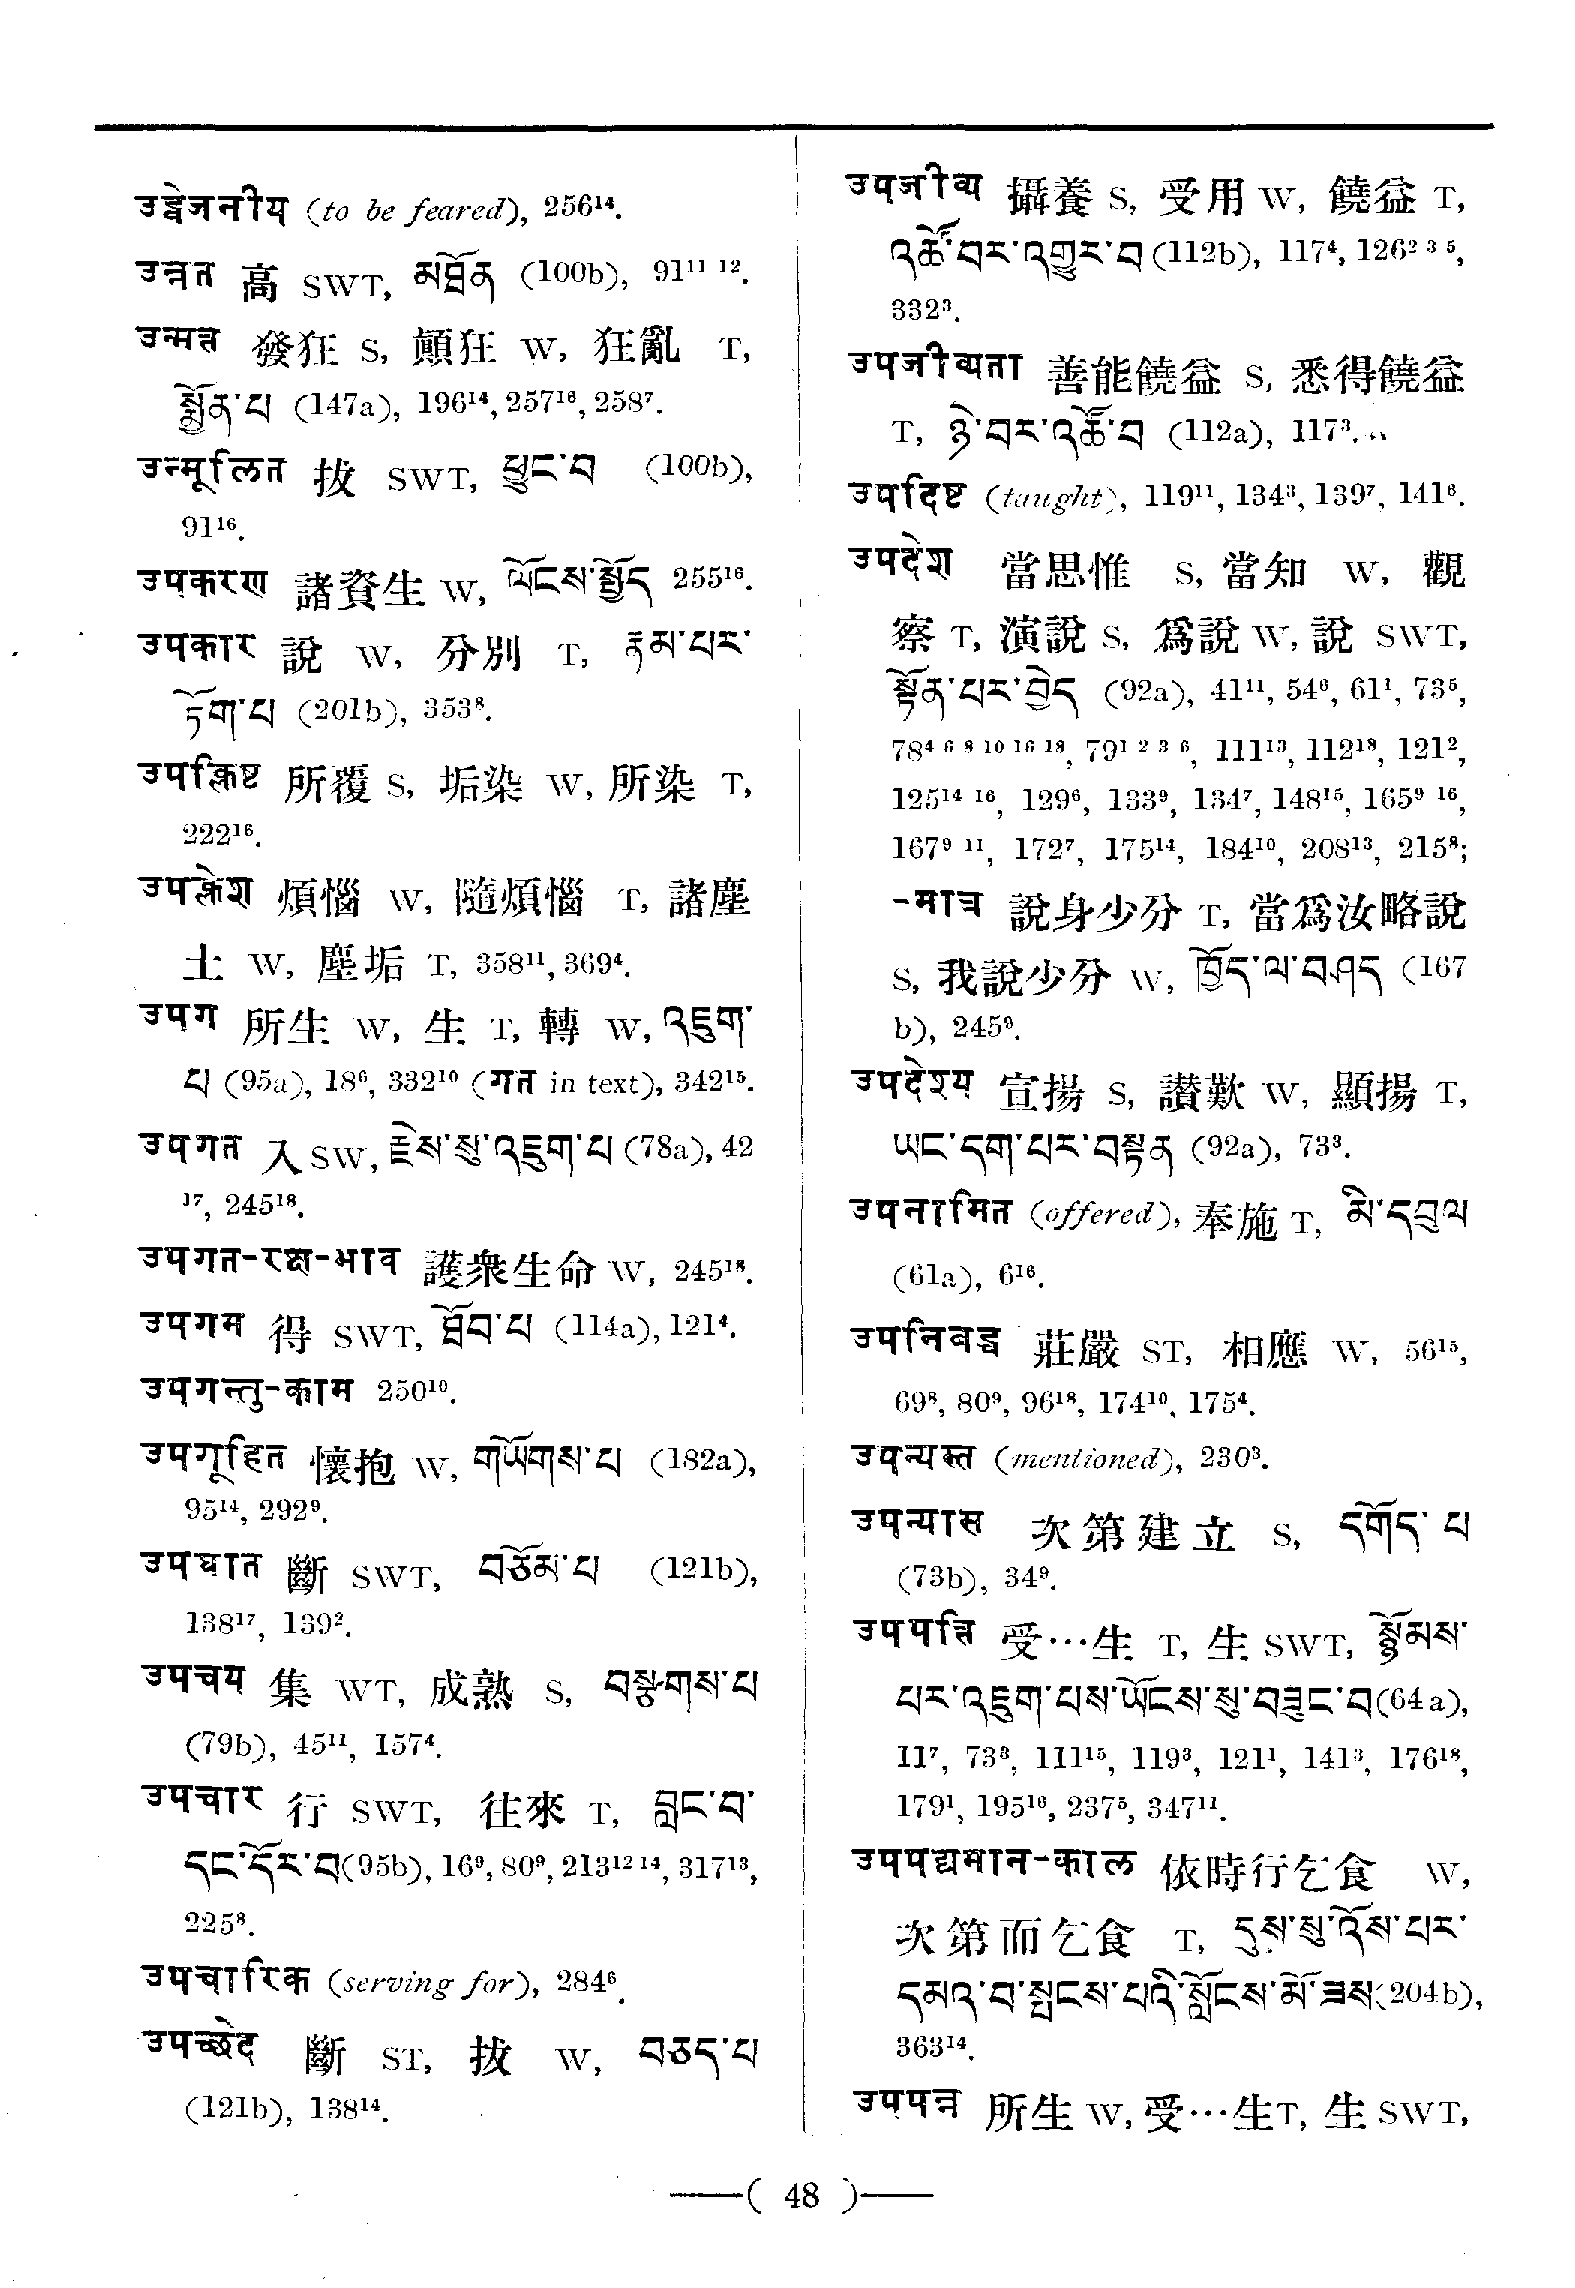 उद्वेजनीय (to be feared), 256¹⁴.
उन्नत 高 SWT, མཐོན (100b), 91¹¹ ¹².
उन्मत्त 發狂 S, 顚狂 W, 狂亂 T,
སྨྱོན་པ (147a), 196¹⁴, 257¹⁶, 258⁷.
उन्मूलित 拔 SWT, ཕྱུང་བ (100b),
91¹⁶.
उपकरण 諸資生 W, ལོངས་སྤྱོད 255¹⁶.
उपकार 說 W, 分別 T, རྣམ་པར་
རྟོག་པ (201b), 353⁸.
उपक्लिष्ट 所覆 S, 垢染 W, 所染 T,
222¹⁶.
उपक्लेश 煩惱 W, 隨煩惱 T, 諸塵
土 W, 塵垢 T, 358¹¹, 369⁴.
उपग 所生 W, 生 T, 轉 W, འཇུག་
པ (95a), 18⁶, 332¹⁰ (गत in text), 342¹⁵.
उपगत 入 SW, རྗེས་སུ་འཇུག་པ (78a), 42
¹⁷, 245¹⁸.
उपगत-रक्ष-भाव 護衆生命 W, 245¹⁸.
उपगम 得 SWT, ཐོབ་པ (114a), 121⁴.
उपगन्तु-काम 250¹⁰.
उपगूहित 懷抱 W, གཡོགས་པ (182a),
95¹⁴, 292⁹.
उपघात 斷 SWT, བཅོམ་པ (121b),
138¹⁷, 139².
उपचय 集 WT, 成熟 S, བསྩགས་པ
(79b), 45¹¹, 157⁴.
उपचार 行 SWT, 往來 T, བླང་བ་
དང་དོར་བ (95b), 16⁹, 80⁹, 213¹² ¹⁴, 317¹³,
225⁸.
उपचारिक (serving for), 284⁶.
उपच्छेद 斷 ST, 拔 W, བཅད་པ
(121b), 138¹⁴.
उपजीव्य 攝養 S, 受用 W, 饒益 T,
འཚོ་བར་འགྱུར་བ (112b), 117⁴, 126² ³ ⁵,
332³.
उपजीव्यता 善能饒益 S, 悉得饒益
T, ཉེ་བར་འཚོ་བ (112a), 117³.
उपदिष्ट (taught), 119¹¹, 134³, 139⁷, 141⁶.
उपदेश 當思惟 S, 當知 W, 觀
察 T, 演說 S, 爲說 W, 說 SWT,
སྟོན་པར་བྱེད (92a), 41¹¹, 54⁶, 61¹, 73⁵,
78⁴ ⁶ ⁸ ¹⁰ ¹⁶ ¹⁸, 79¹ ² ³ ⁶, 111¹³, 112¹⁸, 121²,
125¹⁴ ¹⁶, 129⁶, 133⁹, 134⁷, 148¹⁵, 165⁹ ¹⁶,
167⁹ ¹¹, 172⁷, 175¹⁴, 184¹⁰, 208¹³, 215⁸;
-मात्र 說身少分 T, 當爲汝略說
S, 我說少分 W, ཁྱོད་ལ་བཤད (167
b), 245⁹.
उपदेश्य 宣揚 S, 讃歎 W, 顯揚 T,
ཡང་དག་པར་བསྟན (92a), 73³.
उपनामित (offered), 奉施 T, མི་དབུལ
(61a), 6¹⁶.
उपनिबद्ध 莊嚴 ST, 相應 W, 56¹⁵,
69⁸, 80⁹, 96¹⁸, 174¹⁰, 175⁴.
उपन्यस्त (mentioned), 230³.
उपन्यास 次第建立 S, དགོད་པ
(73b), 34⁹.
उपपत्ति 受…生 T, 生 SWT, སྙོམས་
པར་འཇུག་པས་ཡོངས་སུ་བཟུང་བ (64a),
11⁷, 73³, 111¹⁵, 119³, 121¹, 141³, 176¹⁸,
179¹, 195¹⁶, 237⁵, 347¹¹.
उपपद्यमान-काल 依時行乞食 W,
次第而乞食 T, དུས་སུ་འོས་པར་
དམའ་བ་སྤངས་པའི་སློངས་མོ་ཟས (204b),
363¹⁴.
उपपन्न 所生 W, 受…生 T, 生 SWT,
—( 48 )—